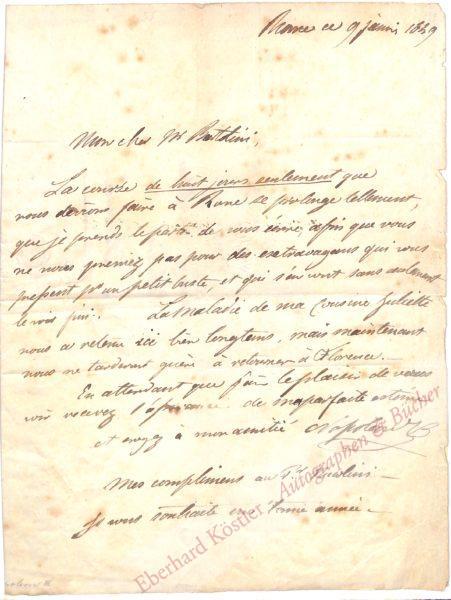 Rome ce 9 janvi 1839
Mon cher Mr Bartolini,
La course de huit jours seulement que
nous devions faire à Rome se prolonge tellement,
que je prends le parti de vous écrire, afin que vous
ne nous preniez pas pour des extravagans qui vous
pressent pr un petit buste, et qui s'en vont sans
le voir fini. La maladie de ma Cousine Juliette
nous a retenu ici bien longtems, mais maintenant
nous ne tarderons guère à retourner à Florence.
En attendant que j'aie le plaisir de vous
voir recevez l'assurance de ma parfaite estime
et croyez à mon amitié
Mes complimens au
Je vous souhaite une bonne année
Eberhard Köstler Autographen & Bücher